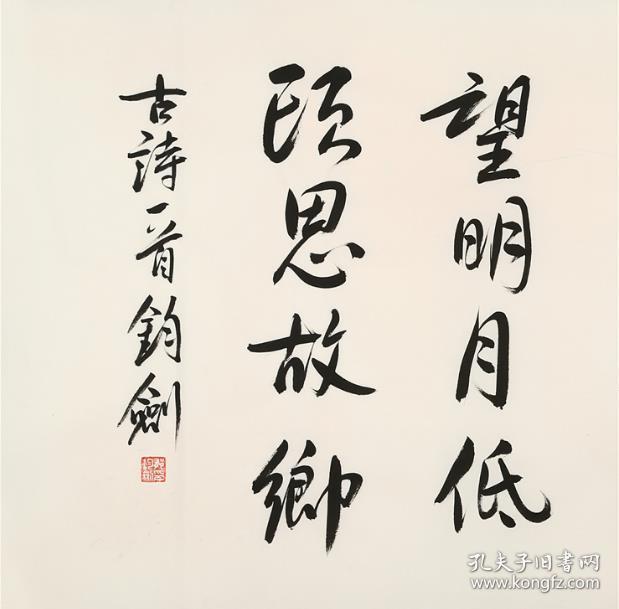 望明月低
頭思故鄉
古詩一首鈞劍
孔夫子旧书网
www.kongfz.com